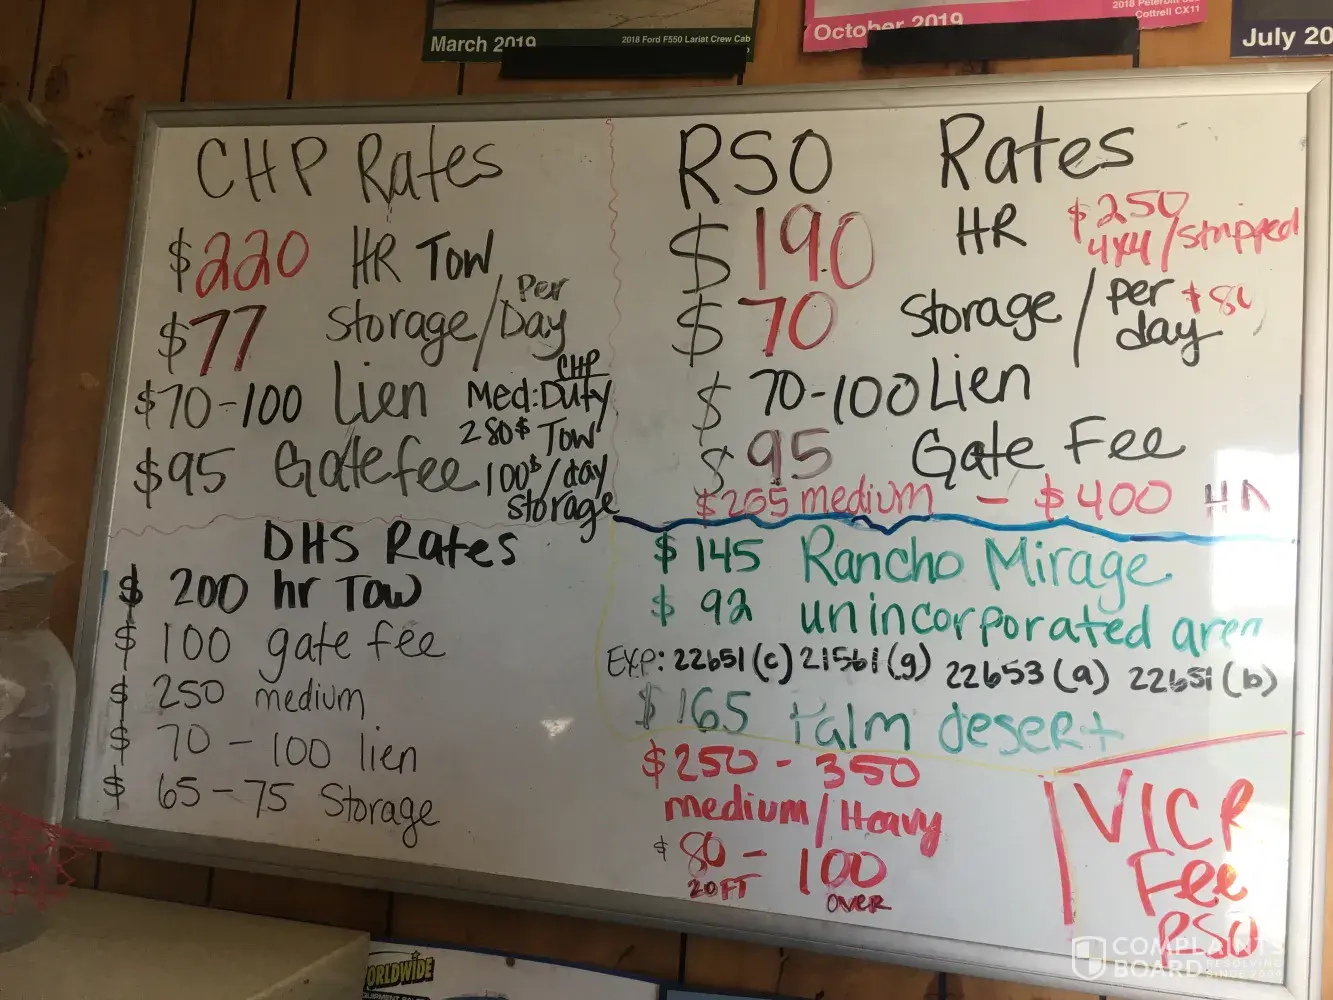 March 2019
2018 Ford F550 Lariat Crew Cab
October 2019
Cottrell CX11
July 20
CHP Rates
$220 HR Tow
$77 Storage/Per Day
$70-100 Lien
$95 Gate fee
CHP
Med: Duty
280$ Tow
100$/day
storage
RSO Rates
$190 HR
$250
4x4/stripped
$70 Storage/per day
$70-100 Lien
$95 Gate Fee
medium - $400
DHS Rates
$ 200 hr Tow
$ 100 gate fee
$ 250 medium
$ 70 - 100 lien
$ 65-75 Storage
$ 145 Rancho Mirage
$ 92 unincorporated area
EXP: 22651(c) 21561(g) 22653(a) 22651(b)
$ 165 Palm desert
$250 - 350
medium/Heavy
$ 80 - 100
20FT OVER
VICR
Fee
RSO
WORLDWIDE
COMPLAINTS
BOARD RESOLVING
SINCE 2004